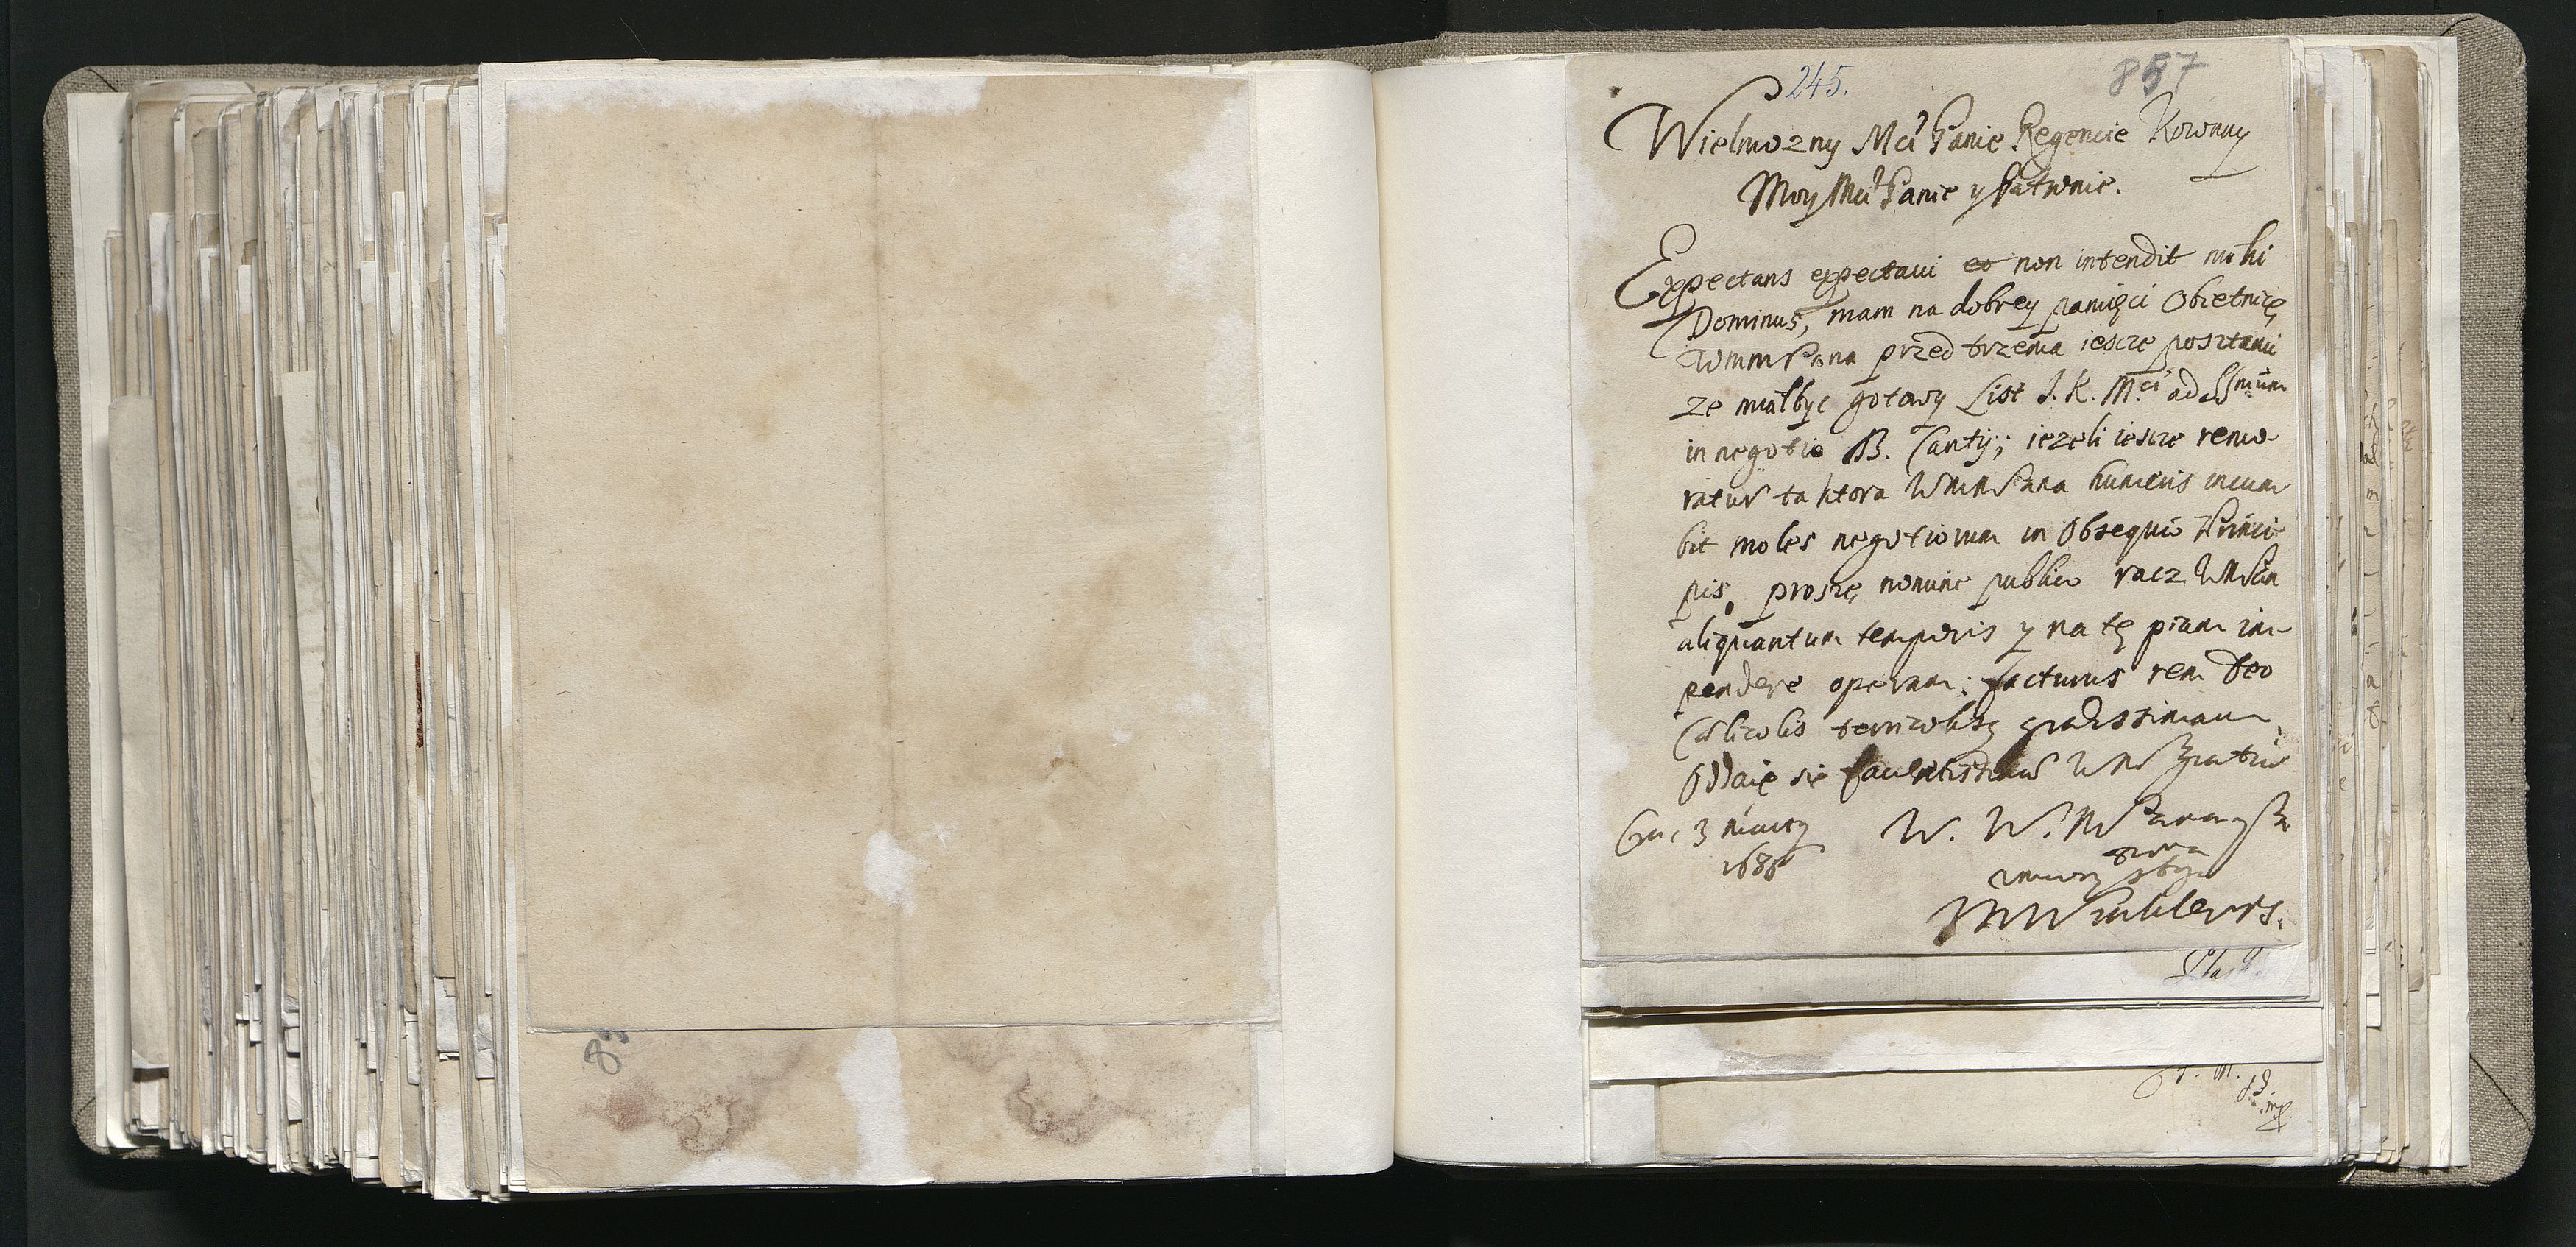 245.
857
Wielmozny Mci Panie Regencie Koronny
Moy Mci Panie y Patronie.
Expectans expectaui et non intendit mihi
Dominus, mam na dobrey pamięci Obietnicę
WMMPana przed trzema iescze posztami
ze miał byc gotowy List J. K. Mci ad SSmum
in negotio B. Cantij; iezeli iescze remo-
ratur ta ktora WMMPana humeris incum
bit moles negotiorum in Obsequio Princi-
pis, proszę nomine publico racz WMPan
aliquantum temporis y na tę piam im-
pendere operam: facturus rem Deo
Cælicolis terricolisq gratissimam
Oddaię się
3
1686
W. W. M Pana y
83